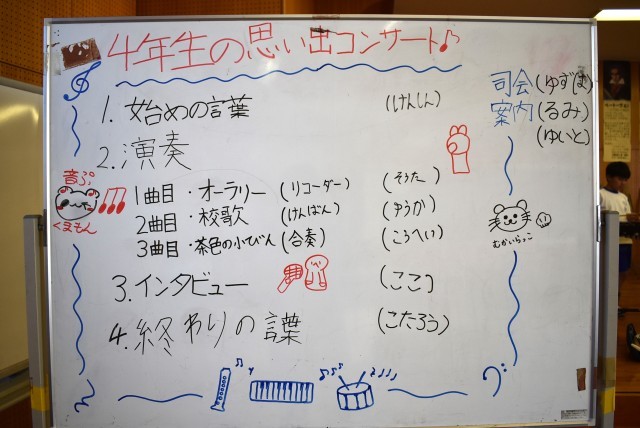 4年生の思い出コンサート
司会(ゆずほ)
案内(るみ)
(ゆいと)
1. 始めの言葉 (けんしん)
2. 演奏
音ぷ
くまもん
1曲目・オーラリー(リコーダー) (そうた)
2曲目・校歌(けんばん) (ゆうか)
3曲目・茶色の小びん(合奏) (こうへい)
むかいらっこ
3. インタビュー (ここ)
4. 終わりの言葉 (こたろう)